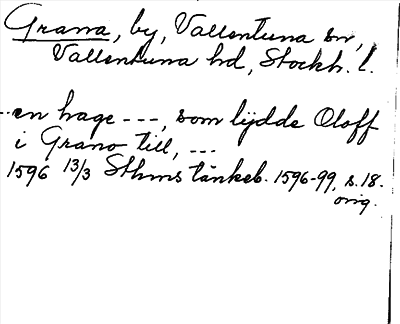 Grana, by, Vallentuna sn,
Vallentuna hd, Stockh. l.
...en hage ---, som lydde Oloff
i Grano till, ---
1596 13/3 Sthms tänkeb. 1596-99, s. 18.
orig.